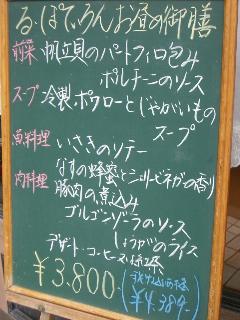 る・ぽてぃろん お昼の御膳
前菜 帆立貝のパートフィロ包み
ポルチーニのソース
スープ 冷製ポワローとじゃがいもの
スープ
魚料理 いさきのソテー
なすの蜂蜜とシェリービネガーの香り
肉料理 豚肉の煮込み
ゴルゴンゾーラのソース
しょうがのライス
デザート・コーヒー又は紅茶
¥3,800-
(税サ込価格
¥4,389-)